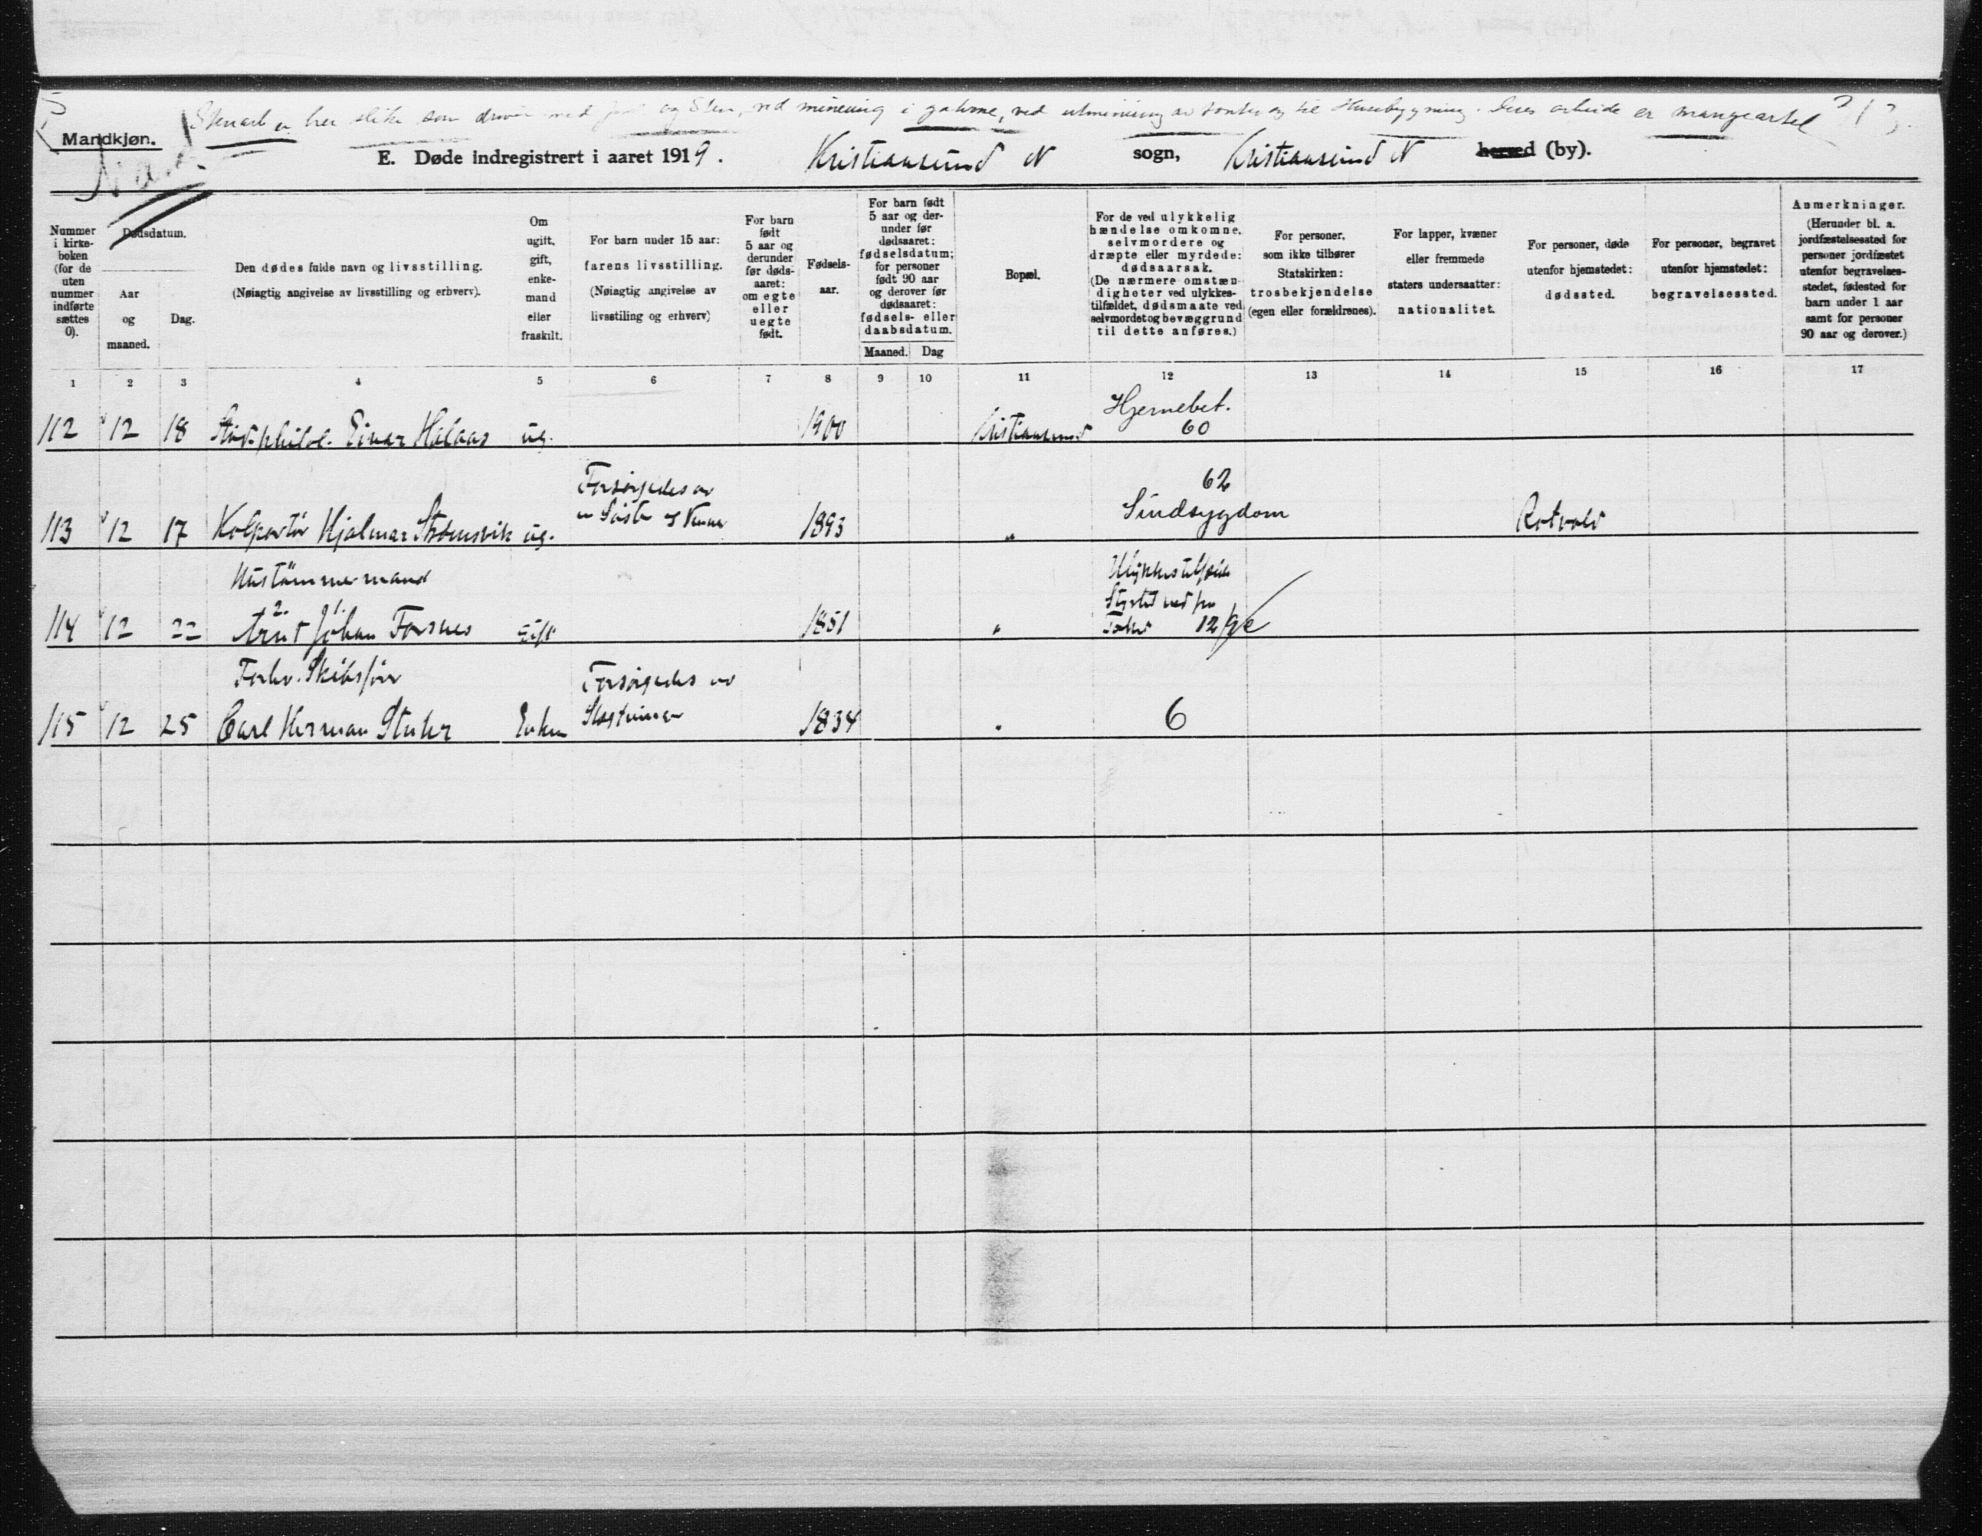 Stenarb er her slike som driver med jord og Sten, ved minering i gatene, ved utminering av tomter og til Husebygning. Deres arbeide er mangeartet
213.
Mandkjøn.
E. Døde indregistrert i aaret 1919. Kristiansund N sogn, Kristiansund N herred (by).
Nummer i kirkeboken (for de uten nummer indførte sættes 0).
Dødsdatum.
Aar og maaned.
Dag.
Den dødes fulde navn og livsstilling.
(Nøiagtig angivelse av livsstilling og erhverv).
Om ugift, gift, enkemand eller fraskilt.
For barn under 15 aar: farens livsstilling.
(Nøiagtig angivelse av livsstiling og erhverv)
For barn født 5 aar og derunder før dødsaaret: om egte eller uegte født.
Fødselsaar.
For barn født 5 aar og derunder før dødsaaret: fødselsdatum; for personer født 90 aar og derover før dødsaaret: fødsels- eller daabsdatum.
Maaned. Dag
Bopæl.
For de ved ulykkelig hændelse omkomne, selvmordere og dræpte eller myrdede: dødsaarsak.
(De nærmere omstændigheter ved ulykkestilfældet, dødsmaate ved selvmordet og bevæggrund til dette anføres.)
For personer, som ikke tilhører Statskirken: trosbekjendelse (egen eller forældrenes).
For lapper, kvæner eller fremmede staters undersaatter: nationalitet.
For personer, døde utenfor hjemstedet: dødssted.
For personer, begravet utenfor hjemstedet: begravelsessted.
Anmerkninger.
(Herunder bl. a. jordfæstelsessted for personer jordfæstet utenfor begravelsesstedet, fødested for barn under 1 aar samt for personer 90 aar og derover.)
1 2 3 4 5 6 7 8 9 10 11 12 13 14 15 16 17
112 12 18 Stud. philol. Einar Halaas ug. 1900 Kristiansund Hjernebet. 60
113 12 17 Kolportør Hjalmar Strømsvik ug. Forsørgedes av en Søster 1893 " 62 Sindsygdom Rotvold
Hustømmermand
114 12 22 Arnt Johan Forsnes gift 1851 " Ulykkestilfælde Styrtet ned fra 12
2. 1.
Forhv. Skibsfører
115 12 25 Carl Herman Stuhr Enkem Forsørgedes av 1834 " 6